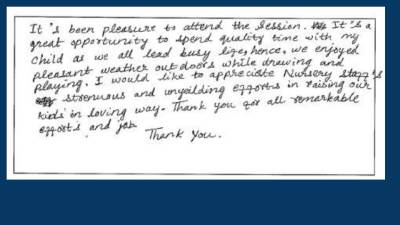 It's been pleasure to attend the session. It's a
great opportunity to spend quality time with my
child as we all lead busy life, hence, we enjoyed
pleasant weather outdoors while drawing and
playing. I would like to appreciate Nursery Staff's
strenuous and unyeilding efforts in raising our
kids in loving way. Thank you for all remarkable
efforts and job.
Thank You.